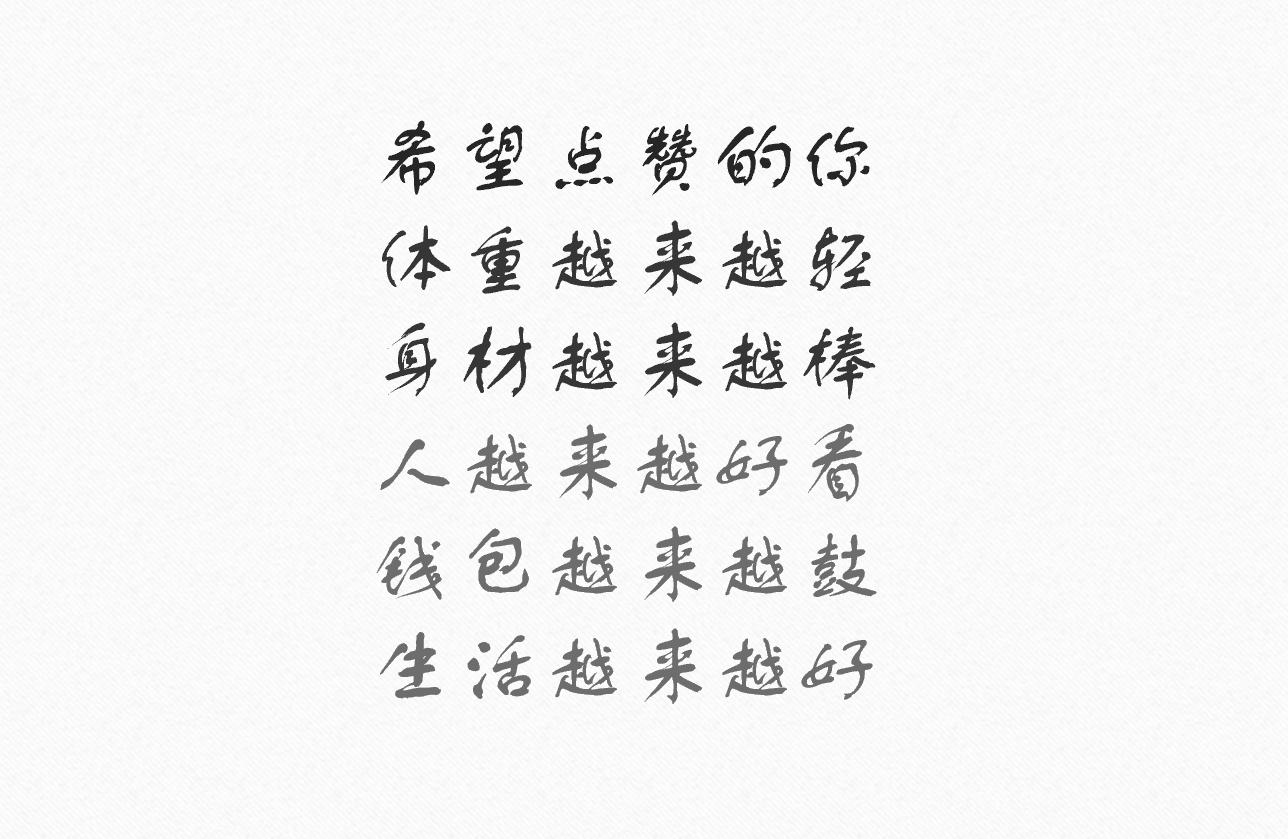 希望点赞的你
体重越来越轻
身材越来越棒
人越来越好看
钱包越来越鼓
生活越来越好